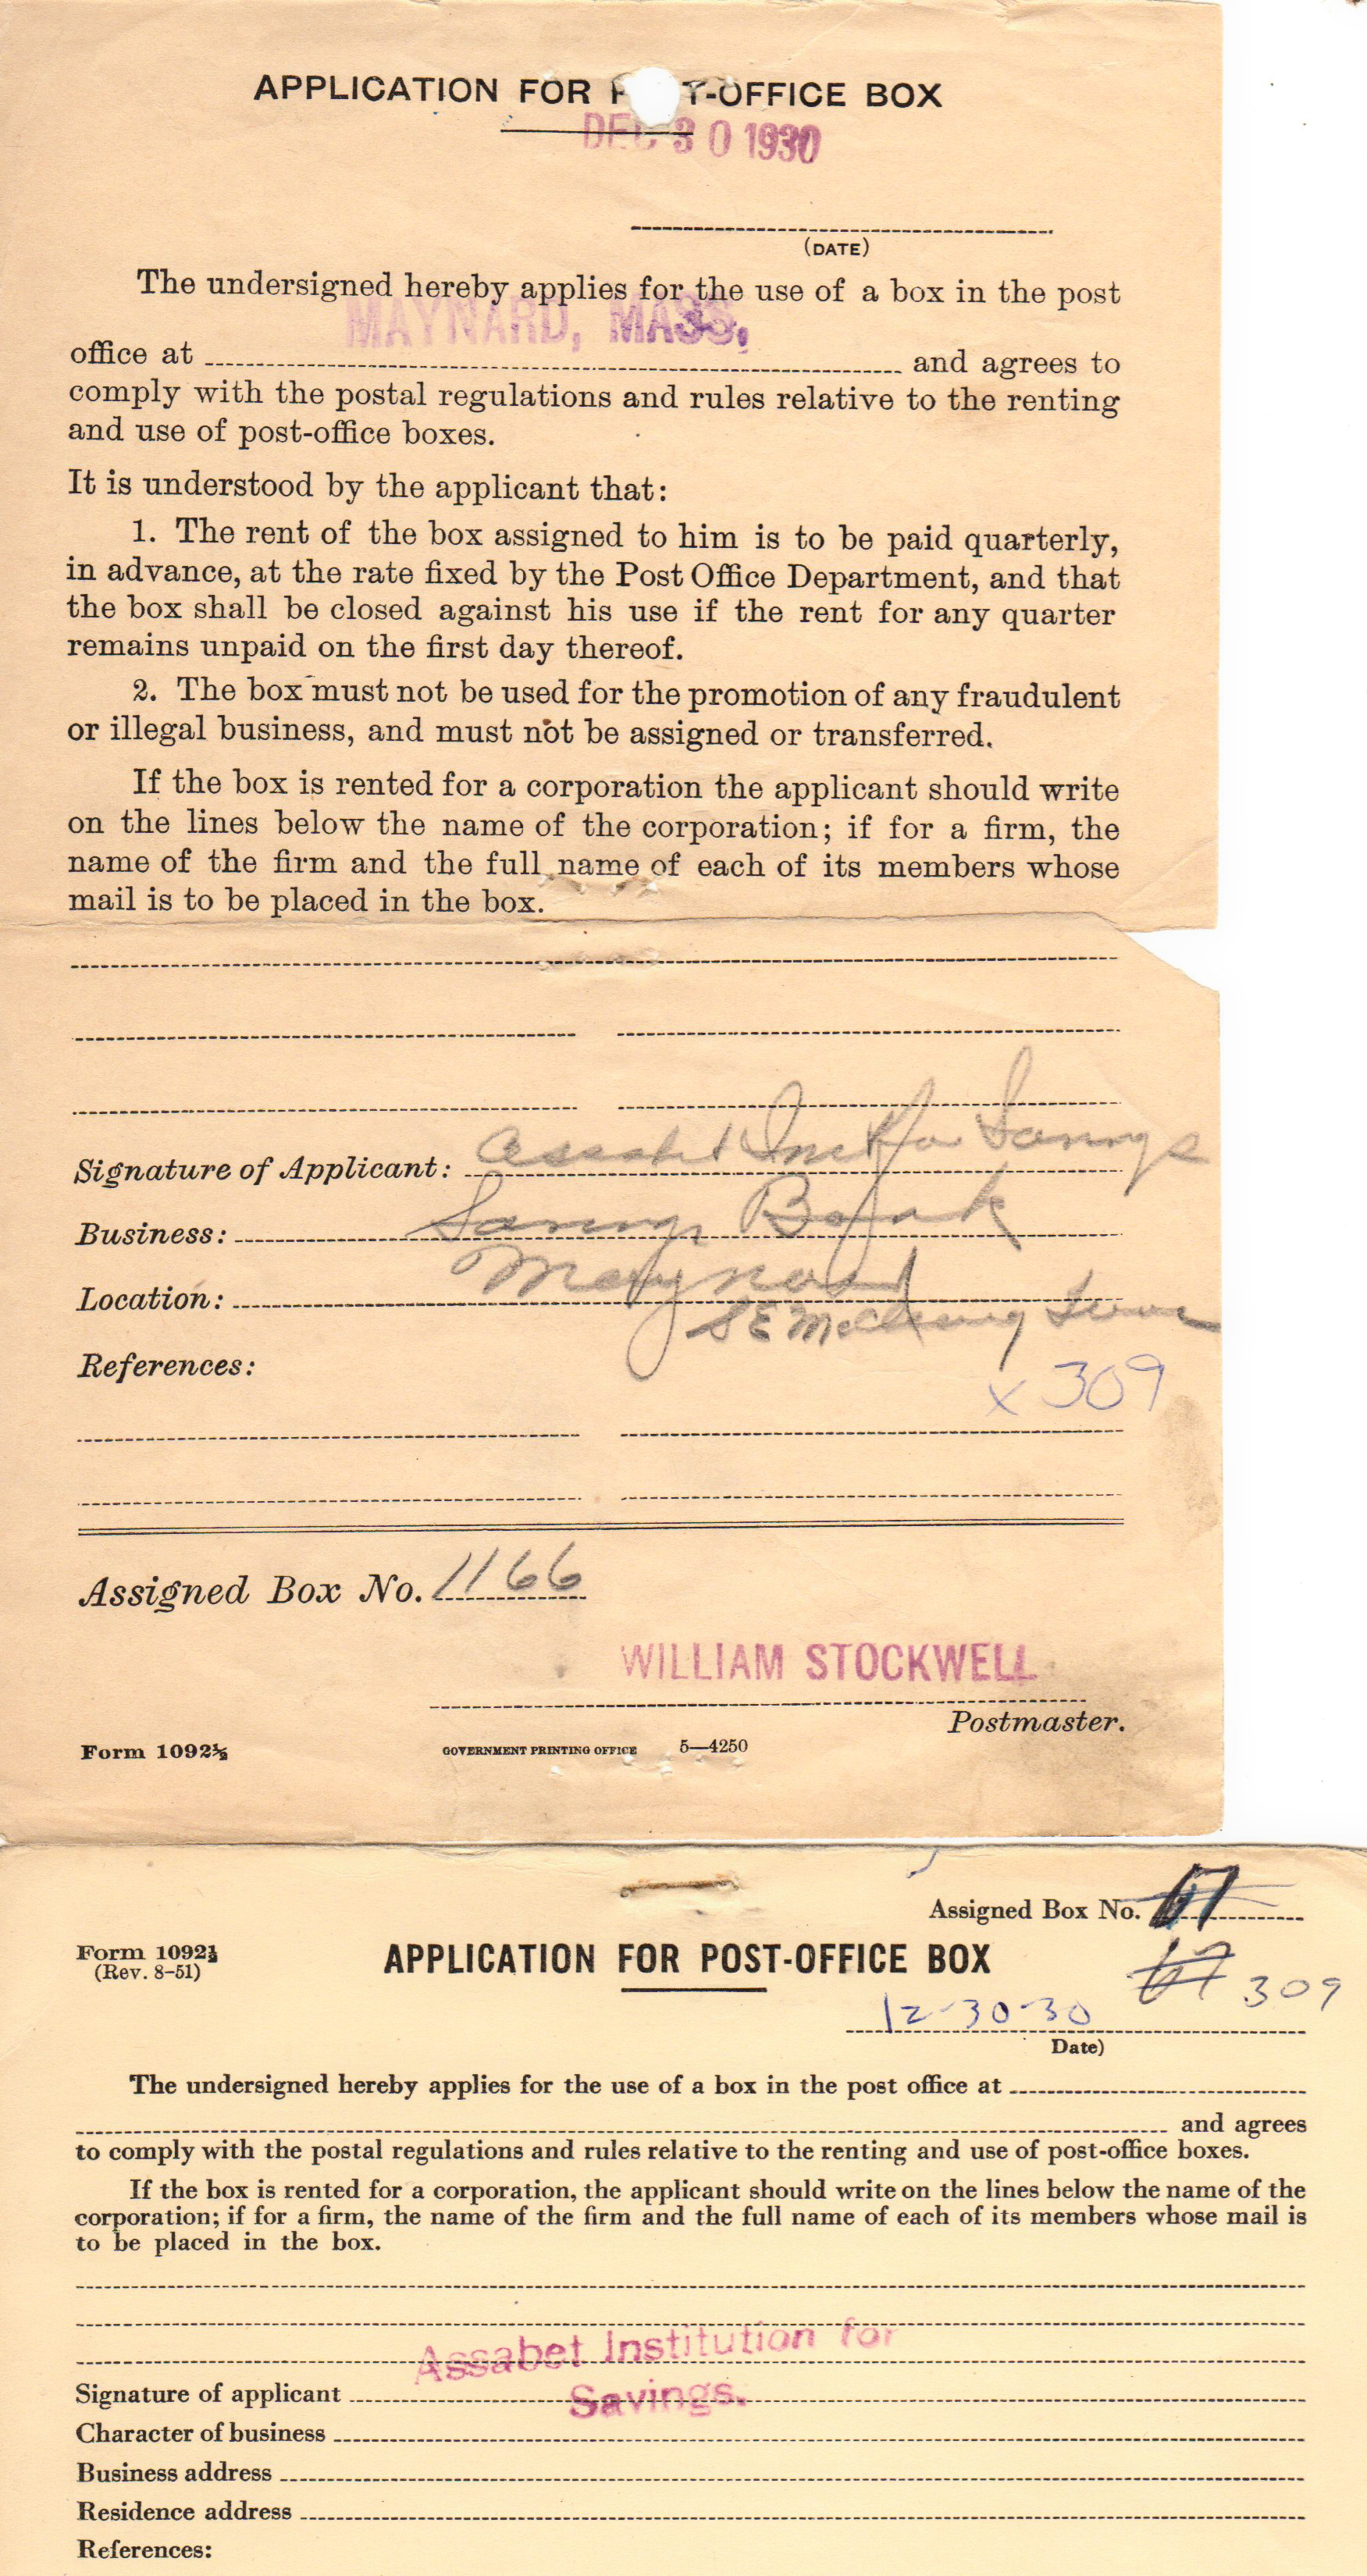 APPLICATION FOR T-OFFICE BOX
DEC 30 1930
(DATE)
The undersigned hereby applies for the use of a box in the post
MAYNARD, MASS.
office at and agrees to
comply with the postal regulations and rules relative to the renting
and use of post-office boxes.
It is understood by the applicant that:
1. The rent of the box assigned to him is to be paid quarterly,
in advance, at the rate fixed by the Post Office Department, and that
the box shall be closed against his use if the rent for any quarter
remains unpaid on the first day thereof.
2. The box must not be used for the promotion of any fraudulent
or illegal business, and must not be assigned or transferred.
If the box is rented for a corporation the applicant should write
on the lines below the name of the corporation; if for a firm, the
name of the firm and the full name of each of its members whose
mail is to be placed in the box.
Signature of Applicant: Assabet Inst for Savings
Business: Savings Bank
Location: Maynard
S E
References:
x 309
Assigned Box No. 1166
WILLIAM STOCKWELL
Postmaster.
Form 1092½ GOVERNMENT PRINTING OFFICE 5—4250
Assigned Box No. 67
Form 1092½
(Rev. 8-51)
APPLICATION FOR POST-OFFICE BOX
67 309
12-30-30
Date)
The undersigned hereby applies for the use of a box in the post office at
and agrees
to comply with the postal regulations and rules relative to the renting and use of post-office boxes.
If the box is rented for a corporation, the applicant should write on the lines below the name of the
corporation; if for a firm, the name of the firm and the full name of each of its members whose mail is
to be placed in the box.
Assabet Institution for
Signature of applicant Savings.
Character of business
Business address
Residence address
References: